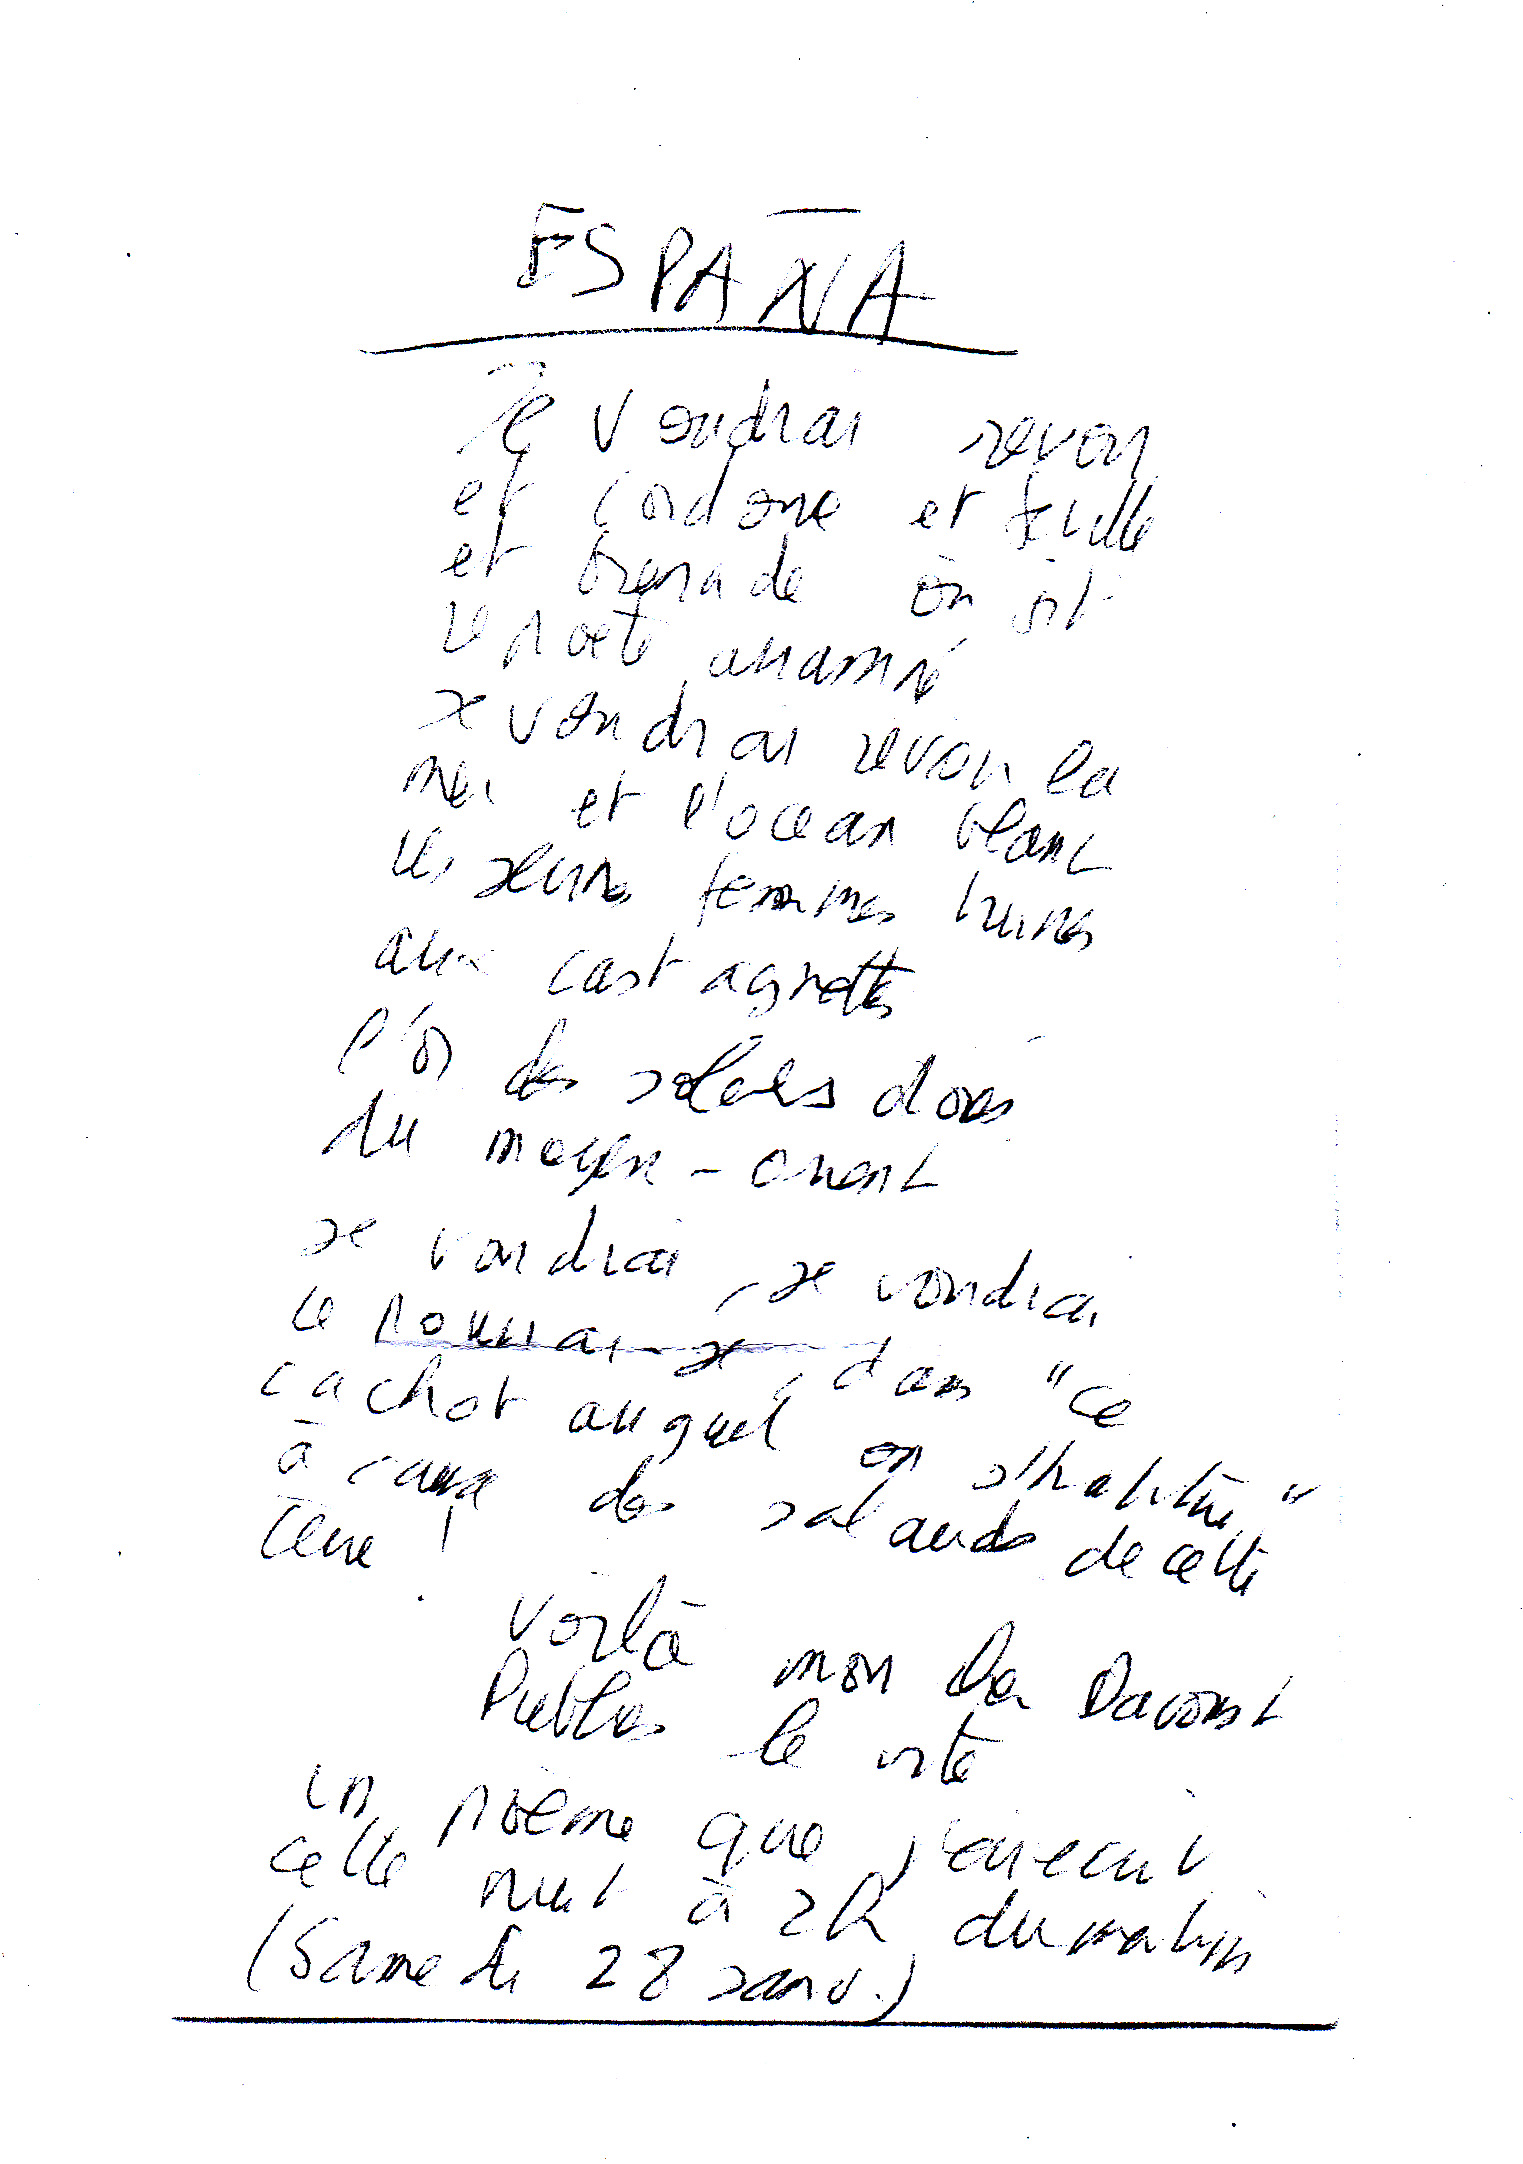 ESPAÑA
Je voudrai revoir
et Cordoue et Séville
et Grenade où vit
le poète assassiné
je voudrai revoir la
mer et l'océan blanc
les jeunes femmes brunes
aux castagnettes
l'or des soleils dorés
du moyen-orient
je voudrai, je voudrai
ce pourrai-je, dans "ce
cachot auquel on s'habitue"
à cause des salauds de cette
terre !
Voilà mon Davoust
Publies le vite
un poème que j'ai écrit
cette nuit à 2h du matin
(Samedi 28 janv.)